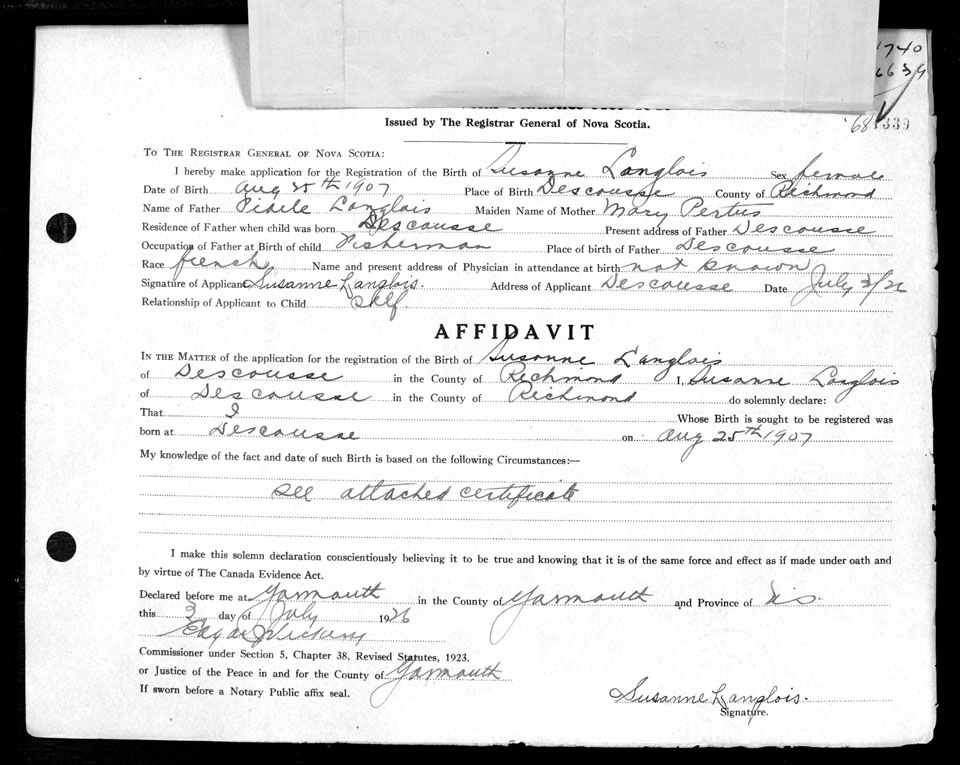 1740
6639
'68 1339
Issued by The Registrar General of Nova Scotia.
To The Registrar General of Nova Scotia:
I hereby make application for the Registration of the Birth of Susanne Langlois Sex female
Date of Birth Aug 25th 1907 Place of Birth Descousse County of Richmond
Name of Father Fidele Langlois Maiden Name of Mother Mary Pertus
Residence of Father when child was born Descousse Present address of Father Descousse
Occupation of Father at Birth of child Fisherman Place of birth of Father Descousse
Race french Name and present address of Physician in attendance at birth not known
Signature of Applicant Susanne Langlois. Address of Applicant Descousse Date July 3/26
Relationship of Applicant to Child self.
AFFIDAVIT
In the Matter of the application for the registration of the Birth of Susanne Langlois
of Descousse in the County of Richmond I, Susanne Langlois
of Descousse in the County of Richmond do solemnly declare:
That I Whose Birth is sought to be registered was
born at Descousse on Aug 25th 1907
My knowledge of the fact and date of such Birth is based on the following Circumstances:—
see attached certificate
I make this solemn declaration conscientiously believing it to be true and knowing that it is of the same force and effect as if made under oath and
by virtue of The Canada Evidence Act.
Declared before me at Yarmouth in the County of Yarmouth and Province of N.S.
this 3 day of July 1926
Edgar
Commissioner under Section 5, Chapter 38, Revised Statutes, 1923.
or Justice of the Peace in and for the County of Yarmouth
If sworn before a Notary Public affix seal.
Susanne Langlois.
Signature.